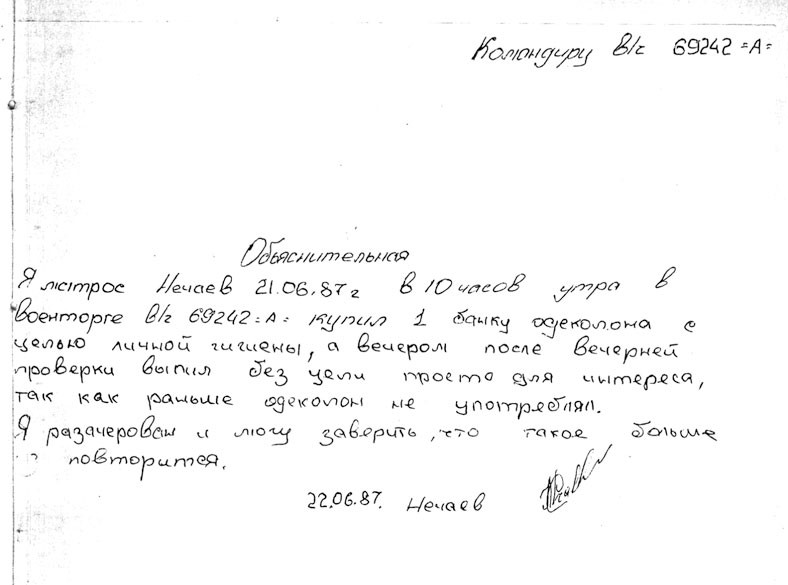 Командиру в/ч 69242 =А=
Объяснительная
Я матрос Нечаев 21.06.87г в 10 часов утра в
военторге в/ч 69242=А= купил 1 банку одеколона с
целью личной гигиены, а вечером после вечерней
проверки выпил без цели просто для интереса,
так как раньше одеколон не употреблял.
Я разачерован и могу заверить, что такое больше
повторится.
22.06.87. Нечаев